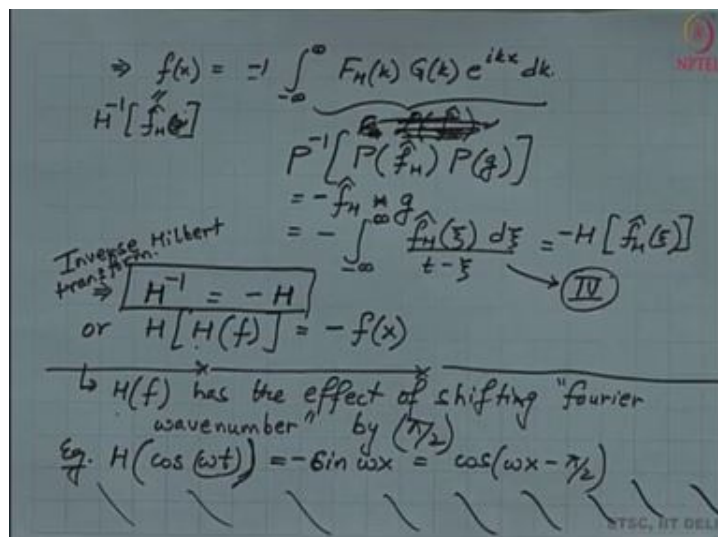 ⇒ f(x) = -1 ∫_{-∞}^{∞} F_H(k) G(k) e^{ikx} dk.
H^{-1}[f̂_H]
P^{-1}[P(f̂_H) P(g)]
= - f̂_H * g
= - ∫_{-∞}^{∞} f̂_H(ξ) dξ / (t - ξ) = -H[f̂_H(ξ)]
IV
Inverse Hilbert
transform.
⇒ H^{-1} = -H
or H[H(f)] = -f(x)
↳ H(f) has the effect of shifting "fourier
wavenumber" by (π/2)
Eg. H(cos(ωt)) = -Sin ωx = cos(ωx - π/2)
NPTEL
ETSC, IIT DELHI